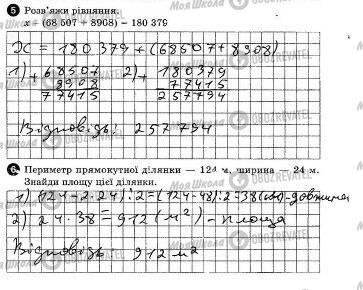 5 Розв'яжи рівняння.
x − (68 507 + 8908) = 180 379
x = 180 379 + (68507 + 8908)
1) + 68507 2) + 180379
8908 77415
77415 257794
Відповідь: 257794
6 Периметр прямокутної ділянки — 124 м, ширина — 24 м.
Знайди площу цієї ділянки.
1) (124-2·24):2=(124-48):2=38(м)-довжина
2) 24·38=912(м²)-площа
Відповідь: 912 м²